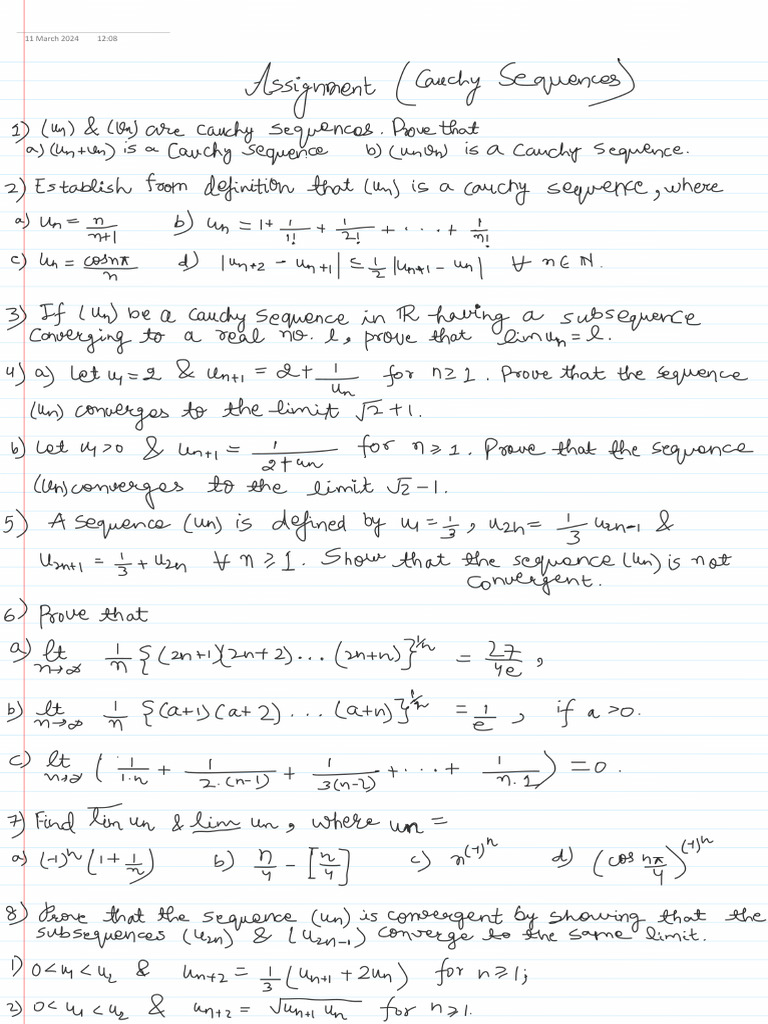 11 March 2024 12:08
Assignment (Cauchy Sequences)
1) (un) & (vn) are cauchy sequences. Prove that
a) (un+vn) is a Cauchy sequence b) (unvn) is a Cauchy sequence.
2) Establish from definition that (un) is a cauchy sequence, where
a) un = n/(n+1) b) un = 1 + 1/1! + 1/2! + ... + 1/n!
c) un = cosnπ/n d) |un+2 - un+1| ≤ 1/2 |un+1 - un| ∀ n∈ℕ.
3) If (un) be a cauchy sequence in ℝ having a subsequence
converging to a real no. l, prove that lim un = l.
4) a) Let u1 = 2 & un+1 = 2 + 1/un for n≥1. Prove that the sequence
(un) converges to the limit √2+1.
b) Let u1>0 & un+1 = 1/(2+un) for n≥1. Prove that the sequence
(un) converges to the limit √2-1.
5) A sequence (un) is defined by u1 = 1/3, u2n = 1/3 u2n-1 &
u2n+1 = 1/3 + u2n ∀ n≥1. Show that the sequence (un) is not
convergent.
6) Prove that
a) lt n→∞ 1/n {(2n+1)(2n+2)...(2n+n)}^1/n = 27/4e,
b) lt n→∞ 1/n {(a+1)(a+2)...(a+n)}^1/n = 1/e, if a>0.
c) lt n→∞ (1/1.n + 1/2.(n-1) + 1/3(n-2) + ... + 1/n.1) = 0.
7) Find l̅i̅m̅ un & l̲i̲m̲ un, where un =
a) (-1)^n (1 + 1/n) b) n/4 - [n/4] c) n^(-1)^n d) (cos nπ/4)^(-1)^n
8) Prove that the sequence (un) is convergent by showing that the
subsequences (u2n) & (u2n-1) converge to the same limit.
1) 0<u1<u2 & un+2 = 1/3 (un+1 + 2un) for n≥1;
2) 0<u1<u2 & un+2 = √(un+1 un) for n≥1.